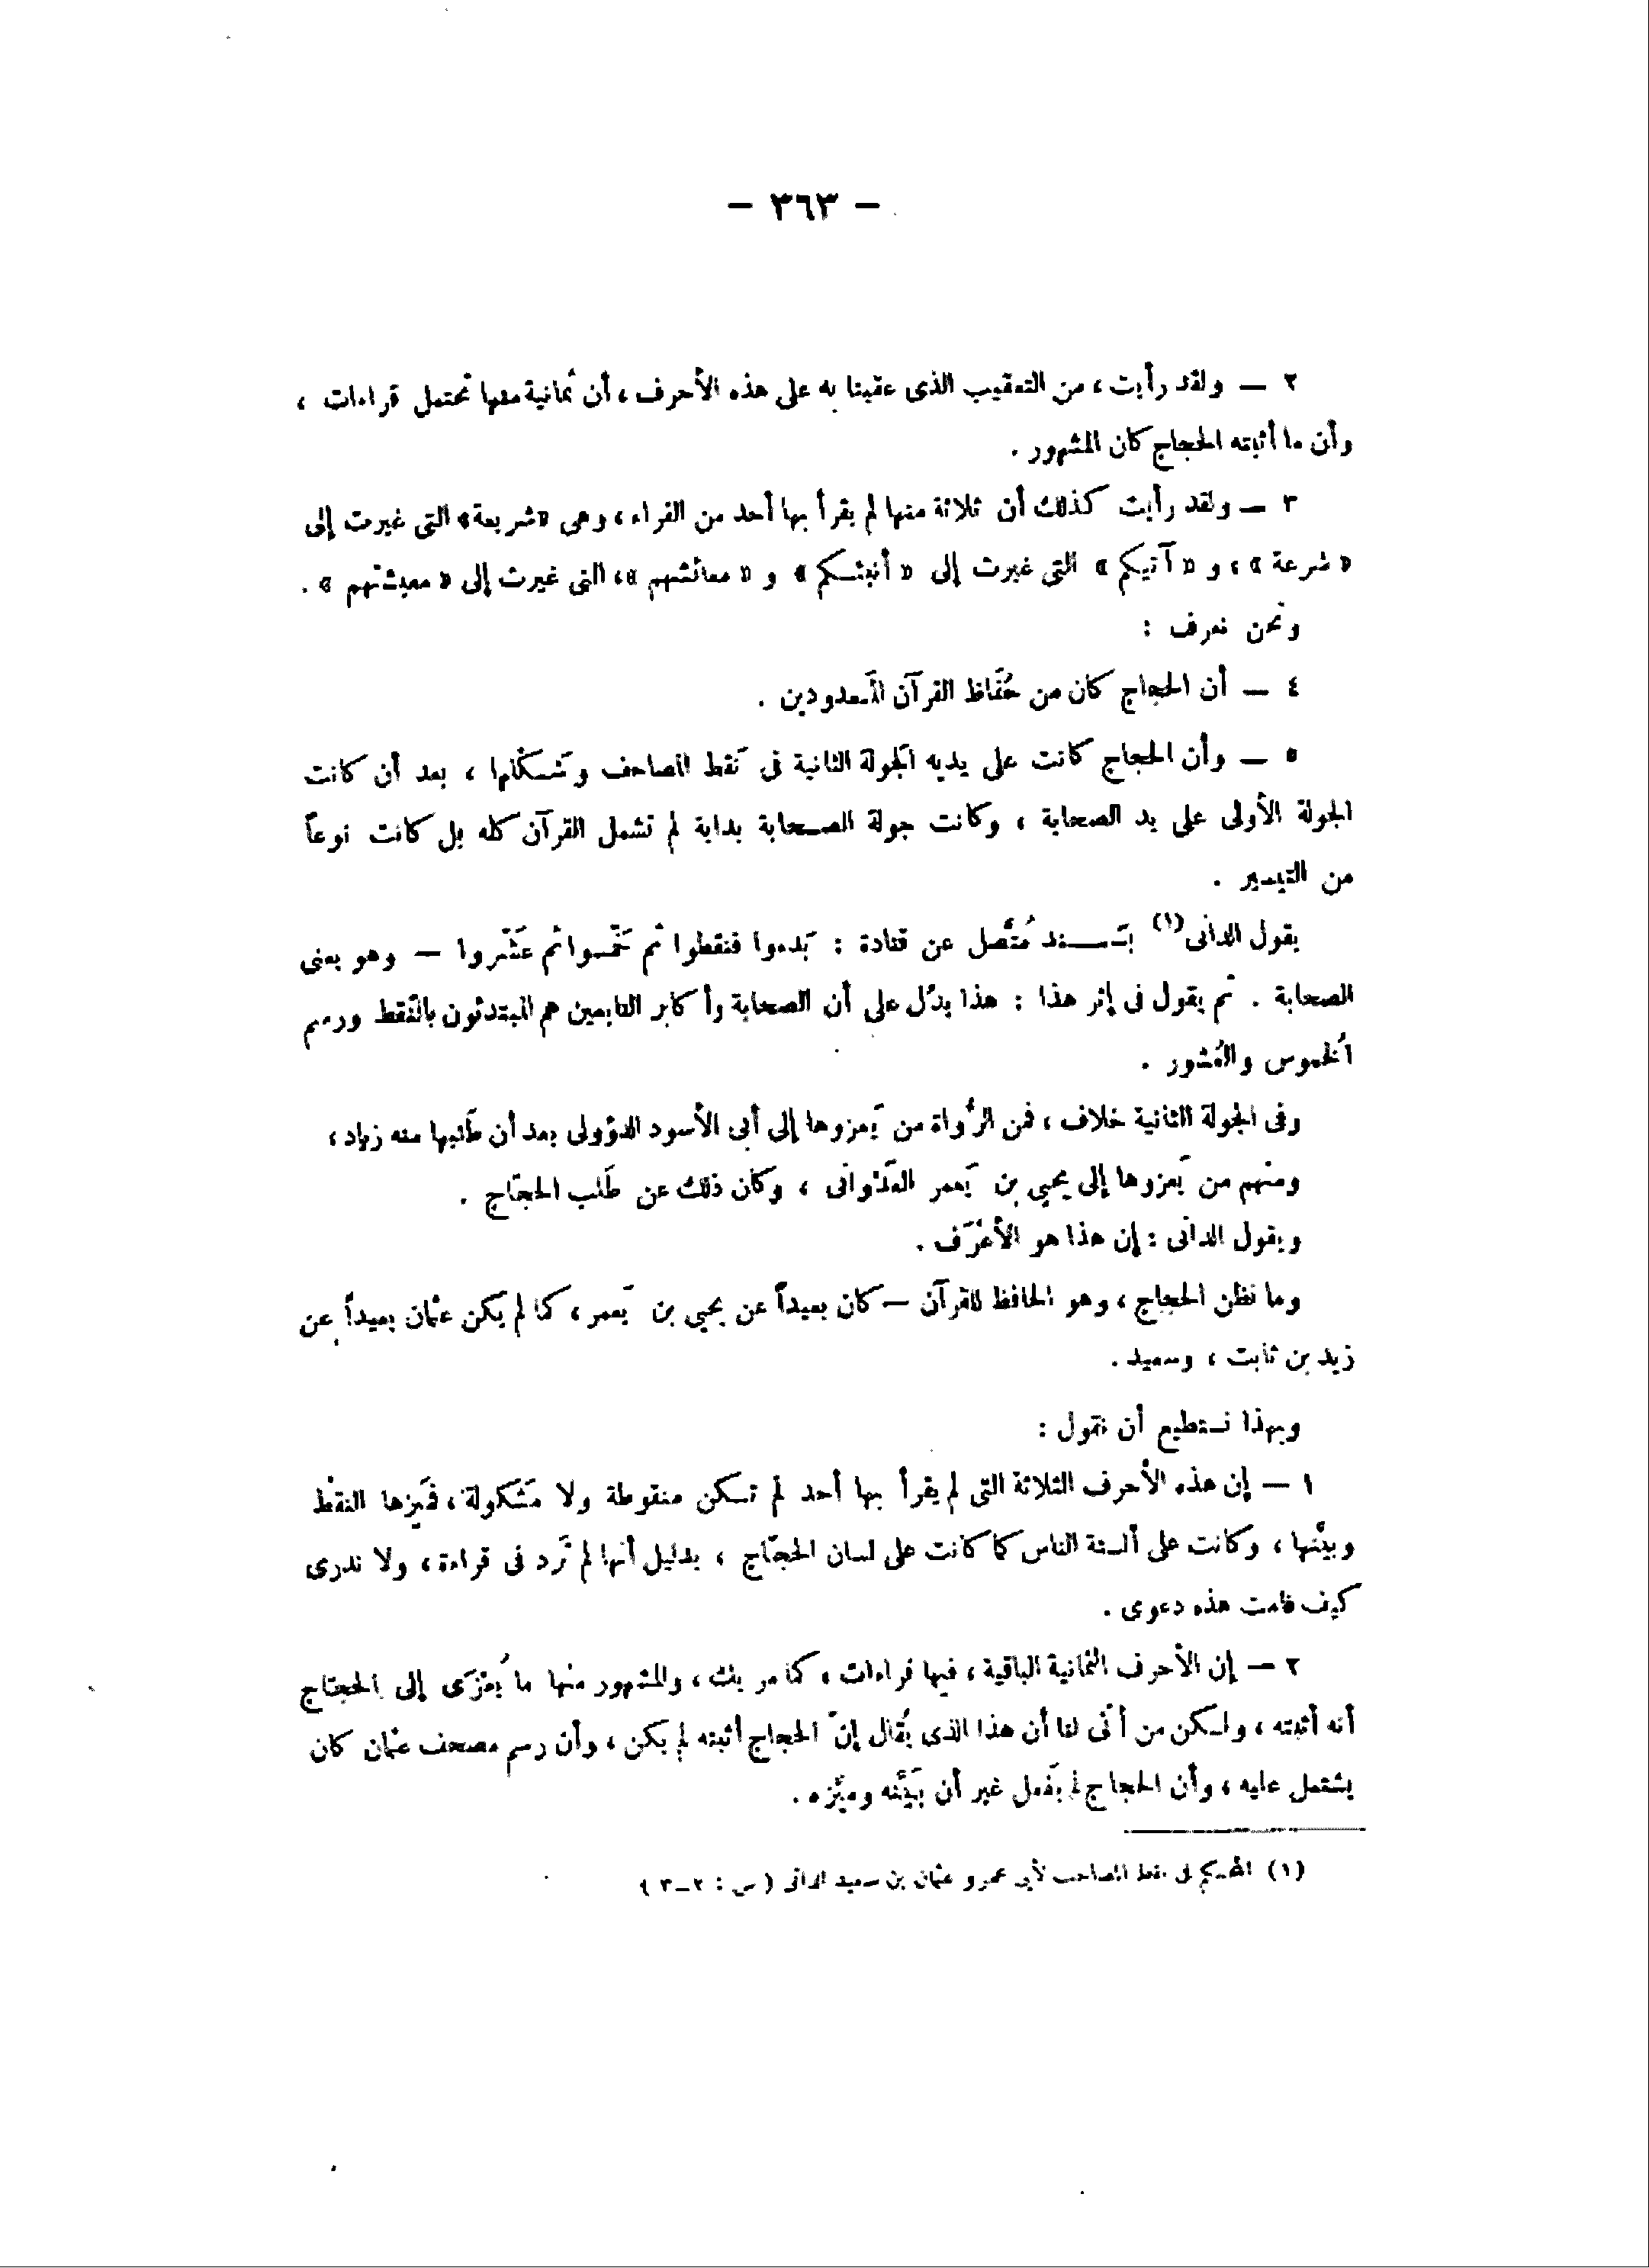 — ٣٦٣ —
٢ — ولقد رأيت ، من التعقيب الذى عقبنا به على هذه الأحرف ، أن ثمانية منها تحتمل قراءات ،
وأن ما أثبته الحجاج كان المشهور .
٣ — ولقد رأيت كذلك أن ثلاثة منها لم يقرأ بها أحد من القراء ، وهى «شريعة» التى غيرت إلى
« شرعة » ، و « آتيكم » التى غيرت إلى « أنبئكم » و « معائشهم » ، التى غيرت إلى « معيشتهم » .
ونحن نعرف :
٤ — أن الحجاج كان من حُفّاظ القرآن المَعدودين .
٥ — وأن الحجاج كانت على يديه الجَولة الثانية فى نَقط المصاحف وشَكْلها ، بعد أن كانت
الجولة الأولى على يد الصحابة ، وكانت جولة الصحابة بداية لم تشمل القرآن كله بل كانت نوعاً
من التيسير .
يقول الدانى (١) بسَند مُتّصل عن قتادة : بَدءوا فنقطوا ثم خَمّسوا ثم عَشّروا — وهو يعنى
الصحابة . ثم يقول فى إثر هذا : هذا يدُل على أن الصحابة وأكابر التابعين هم المُبتدئون بالنّقط ورسم
الخُموس والعُشور .
وفى الجولة الثانية خلاف ، فمن الرُّواة من يَعزوها إلى أبى الأسود الدؤولى بعد أن طَلبها منه زياد ،
ومنهم من يَعزوها إلى يحيى بن يَعمر العَدْوانى ، وكان ذلك عن طَلب الحجّاج .
ويقول الدانى : إن هذا هو الأعْرَف .
وما نظن الحجاج ، وهو الحافظ للقرآن — كان بعيداً عن يحيى بن يَعمر ، كما لم يكن عثمان بعيداً عن
زيد بن ثابت ، وسعيد .
وبهذا نستطيع أن نقول :
١ — إن هذه الأحرف الثلاثة التى لم يقرأ بها أحد لم تكن منقوطة ولا مَشكولة ، فمَيزها النقْط
وبيّنها ، وكانت على ألسنة الناس كما كانت على لسان الحجّاج ، بدليل أنها لم تَرد فى قراءة ، ولا ندرى
كيف قامت هذه دعوى .
٢ — إن الأحرف الثمانية الباقية ، فيها قراءات ، كما مر بك ، والمشهور منها ما يُعْزَى إلى الحجّاج
أنه أثبته ، ولكن من أنّى لنا أن هذا الذى يُقال إنّ الحجاج أثبته لم يكن ، وأن رسم مصحف عثمان كان
يشتمل عليه ، وأن الحجاج لم يَفعل غير أن بَيّنه وميّزه .
(١) المحكم فى نقط المصاحف لأبى عمرو عثمان بن سعيد الدانى ( س : ٢-٣ )